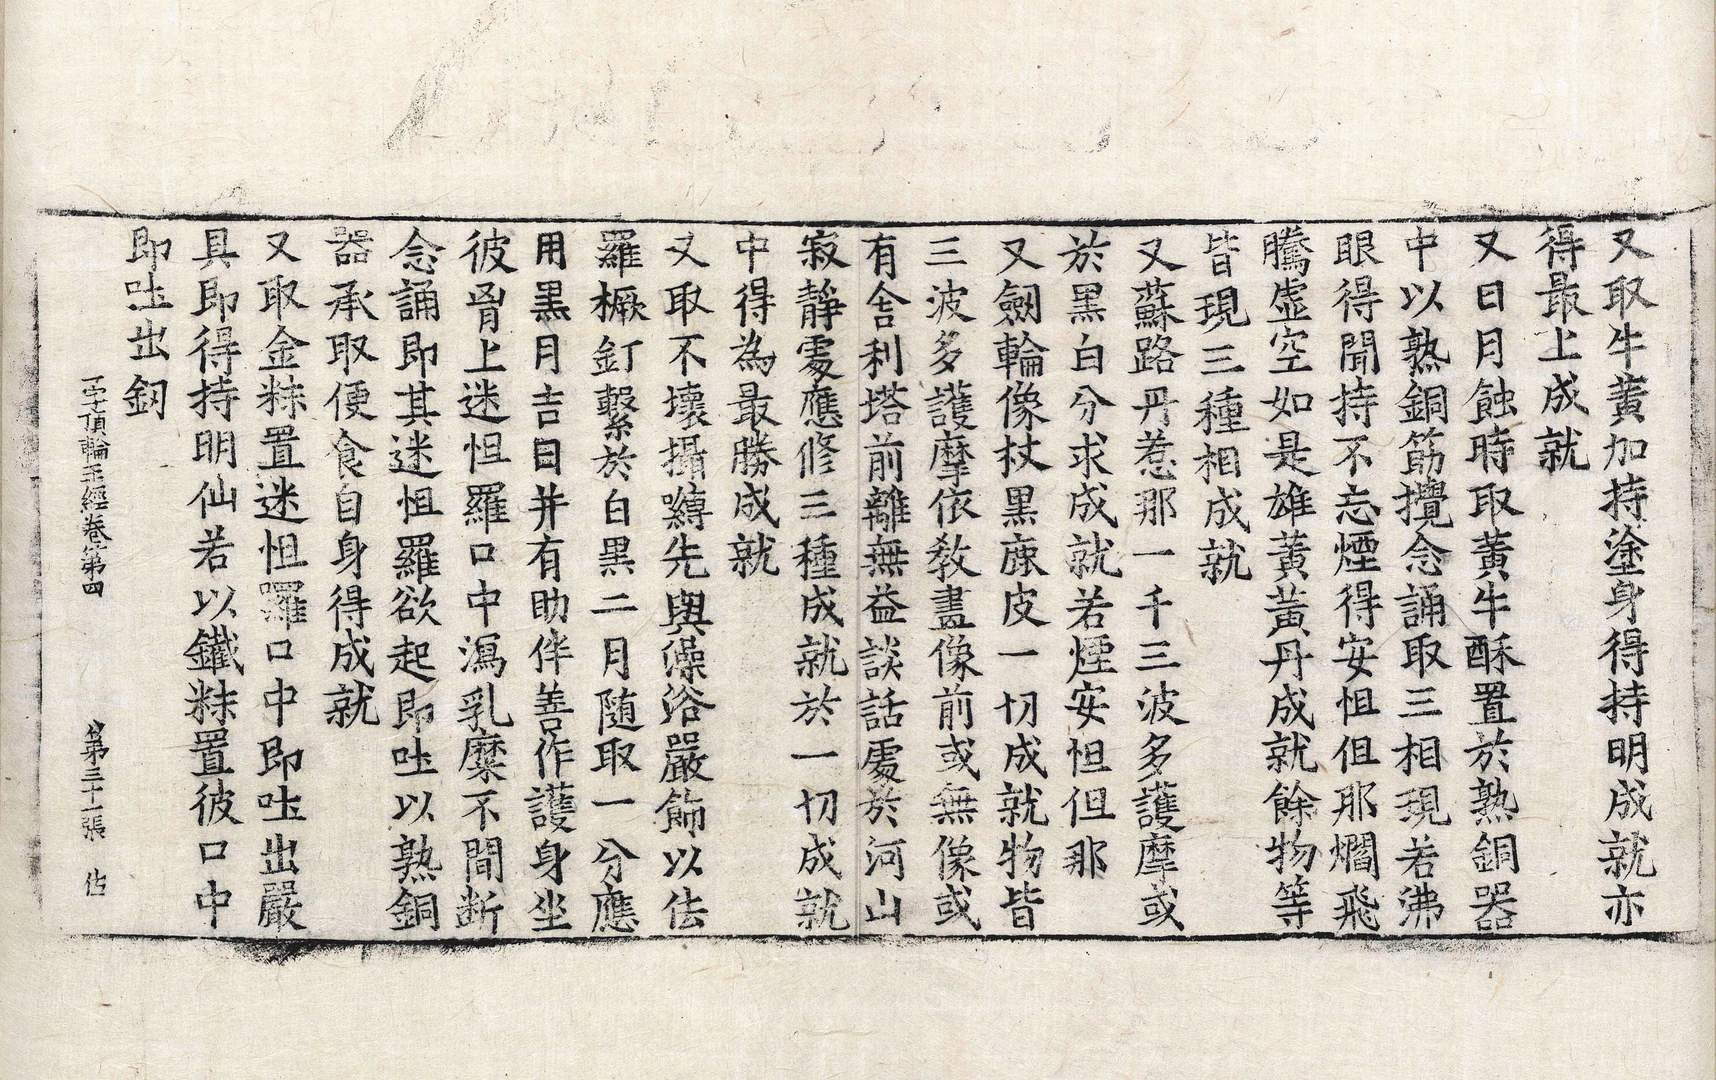 又取牛黃加持塗身得持明成就亦
得最上成就
又日月蝕時取黃牛酥置於熟銅器
中以熟銅筯攪念誦取三相現若沸
眼得聞持不忘煙得安怛但那爓飛
騰虛空如是雄黃黃丹成就餘物等
皆現三種相成就
又蘇路丹惹那一千三波多護摩或
於黑白分求成就若煙安怛但那
又劔輪像杖黑鹿皮一切成就物皆
三波多護摩依教畫像前或無像或
有舍利塔前離無益談話處於河山
寂靜處應修三種成就於一切成就
中得為最勝成就
又取不壞攝嚩先與澡浴嚴飾以佉
羅橛釘繫於白黑二月随取一分應
用黑月吉日并有助伴善作護身坐
彼胷上迷怛羅口中瀉乳糜不間斷
念誦即其迷怛羅欲起即吐以熟銅
器承取便食自身得成就
又取金粖置迷怛羅口中即吐出嚴
具即得持明仙若以鐵粖置彼口中
即吐出釰
一字頂輪王經卷第四 第三十一張 佐